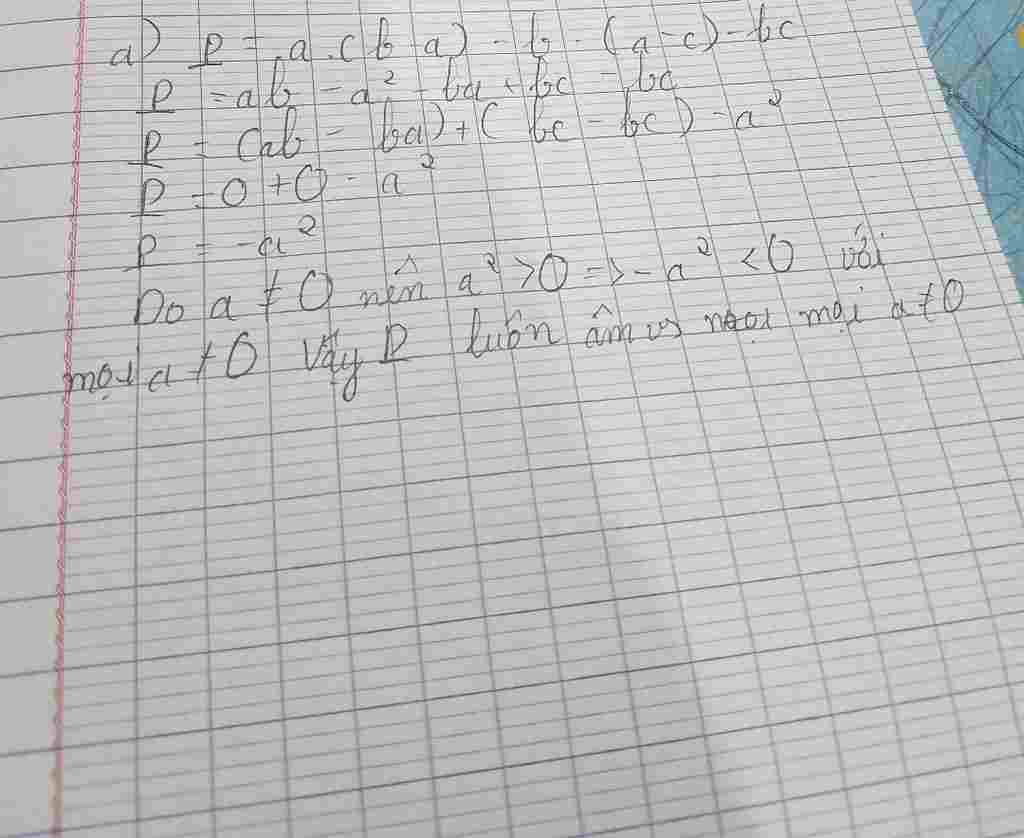 a) P = a.(b-a) - b.(a-c) - bc
P = ab - a² - ba + bc - bc
P = (ab - ba) + (bc - bc) - a²
P = 0 + 0 - a²
P = -a²
Do a ≠ 0 nên a² > 0 => - a² < 0 với
mọi a ≠ 0 Vậy P luôn âm vs mọi a ≠ 0